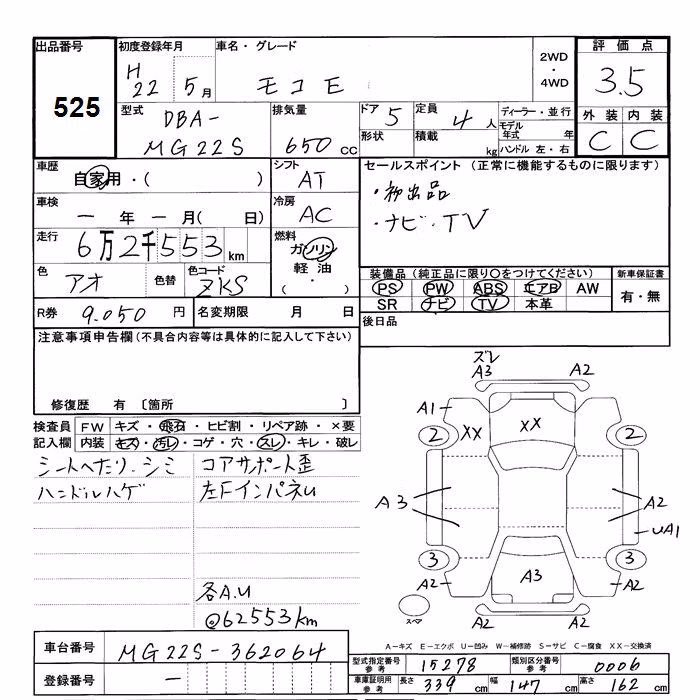 出品番号 初度登録年月 車名・グレード 2WD ・ 4WD 評価点
525 H22 5月 モコE 3.5
型式 排気量 ドア 5 定員 4人 ディーラー・並行 外装 内装
DBA- 形状 積載 kg モデル年式 年 C C
MG22S 650cc ハンドル 左・右
車歴 シフト セールスポイント (正常に機能するものに限ります)
自家用・( ) AT ・初出品
車検 冷房 ・ナビ・TV
一年一月( 日) AC
走行 燃料
6万2千553km ガソリン
色 色替 色コード 軽油 装備品 (純正品に限り○をつけてください) 新車保証書
アオ ZKS (・) PS PW ABS エアB AW 有・無
R券 9.050円 名変期限 月 日 SR ナビ TV 本革
注意事項申告欄(不具合内容等は具体的に記入して下さい) 後日品
修復歴 有 〔箇所 〕
検査員 FW キズ・飛石・ヒビ割・リペア跡・×要
記入欄 内装 キズ・汚レ・コゲ・穴・スレ・キレ・破レ
シートヘタリ.シミ コアサポート歪
ハンドルハゲ 左FインパネU
各A.U
@62553km
ズレ
A3 A2
A1 XX XX
2 2
A3 A2
UA1
3 3
A2 A3 A2
スペア A2
A-キズ E-エクボ U-凹み W-補修跡 S-サビ C-腐食 XX-交換済
車台番号 MG22S-362064 型式指定番号 参考 15278 類別区分番号 参考 0006
登録番号 — 車庫証明用 参考 長さ 339cm 幅 147cm 高さ 162cm